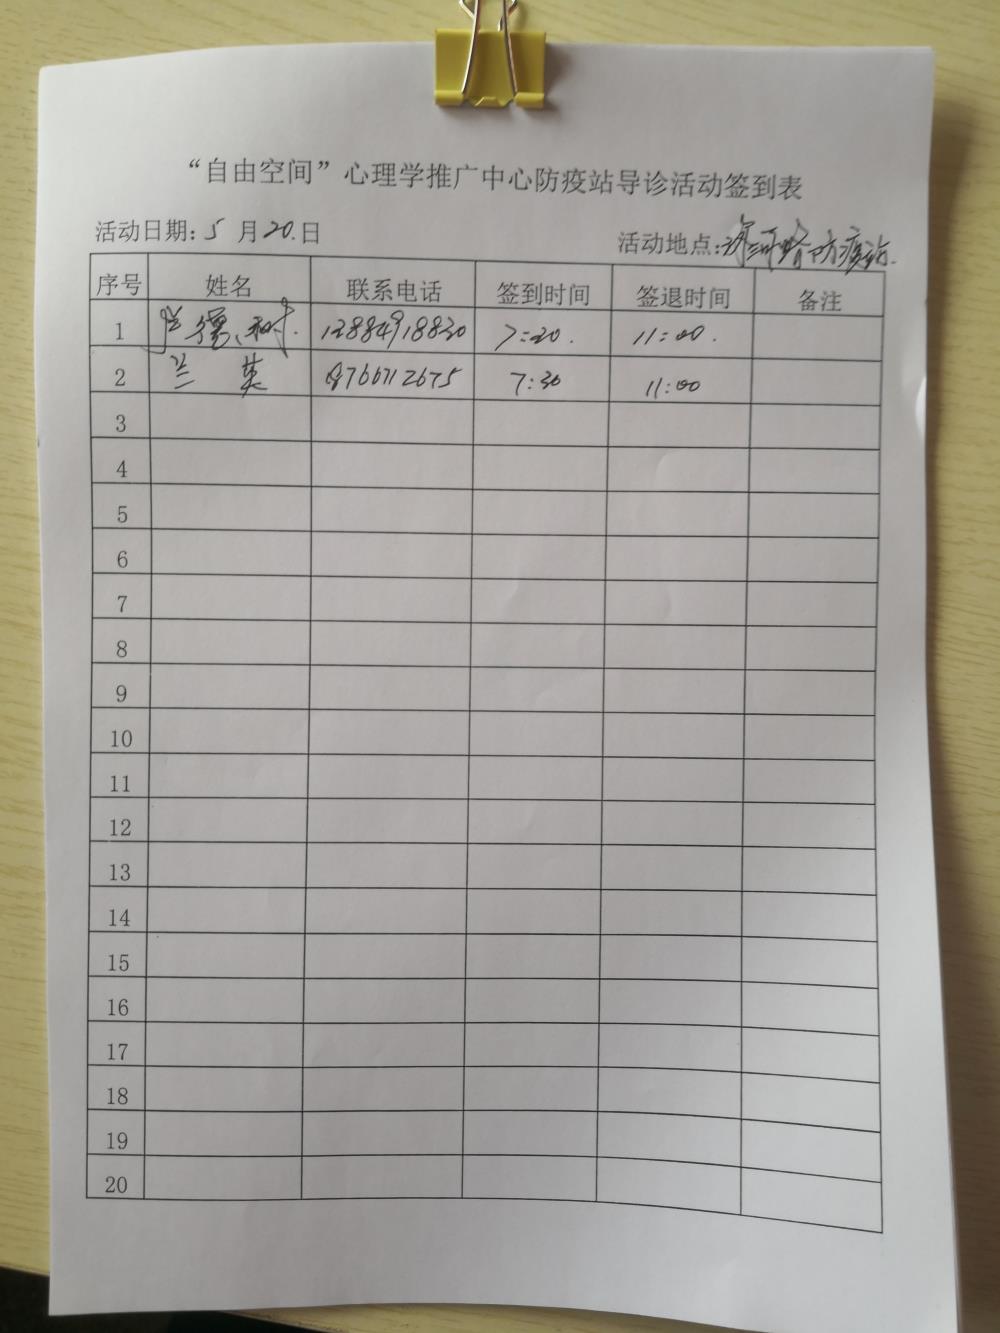 “自由空间”心理学推广中心防疫站导诊活动签到表
活动日期:5月20.日 活动地点:防疫站.
序号 姓名 联系电话 签到时间 签退时间 备注
1 12884918830 7:20. 11:00.
2 兰英 7:30 11:00
3
4
5
6
7
8
9
10
11
12
13
14
15
16
17
18
19
20